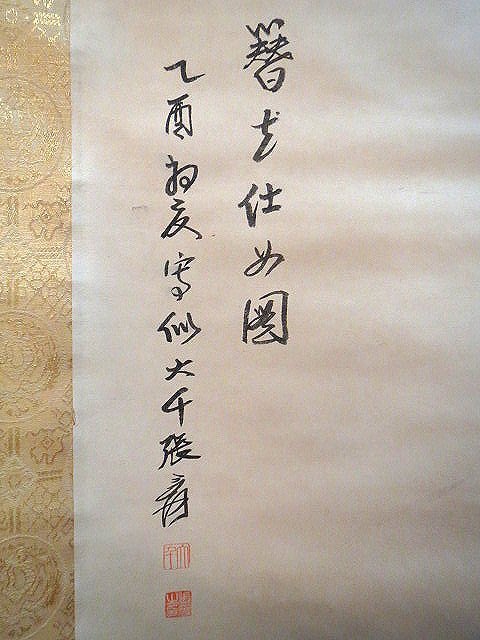 簪花仕女圖
乙酉初夏寫似大千張爰
大千